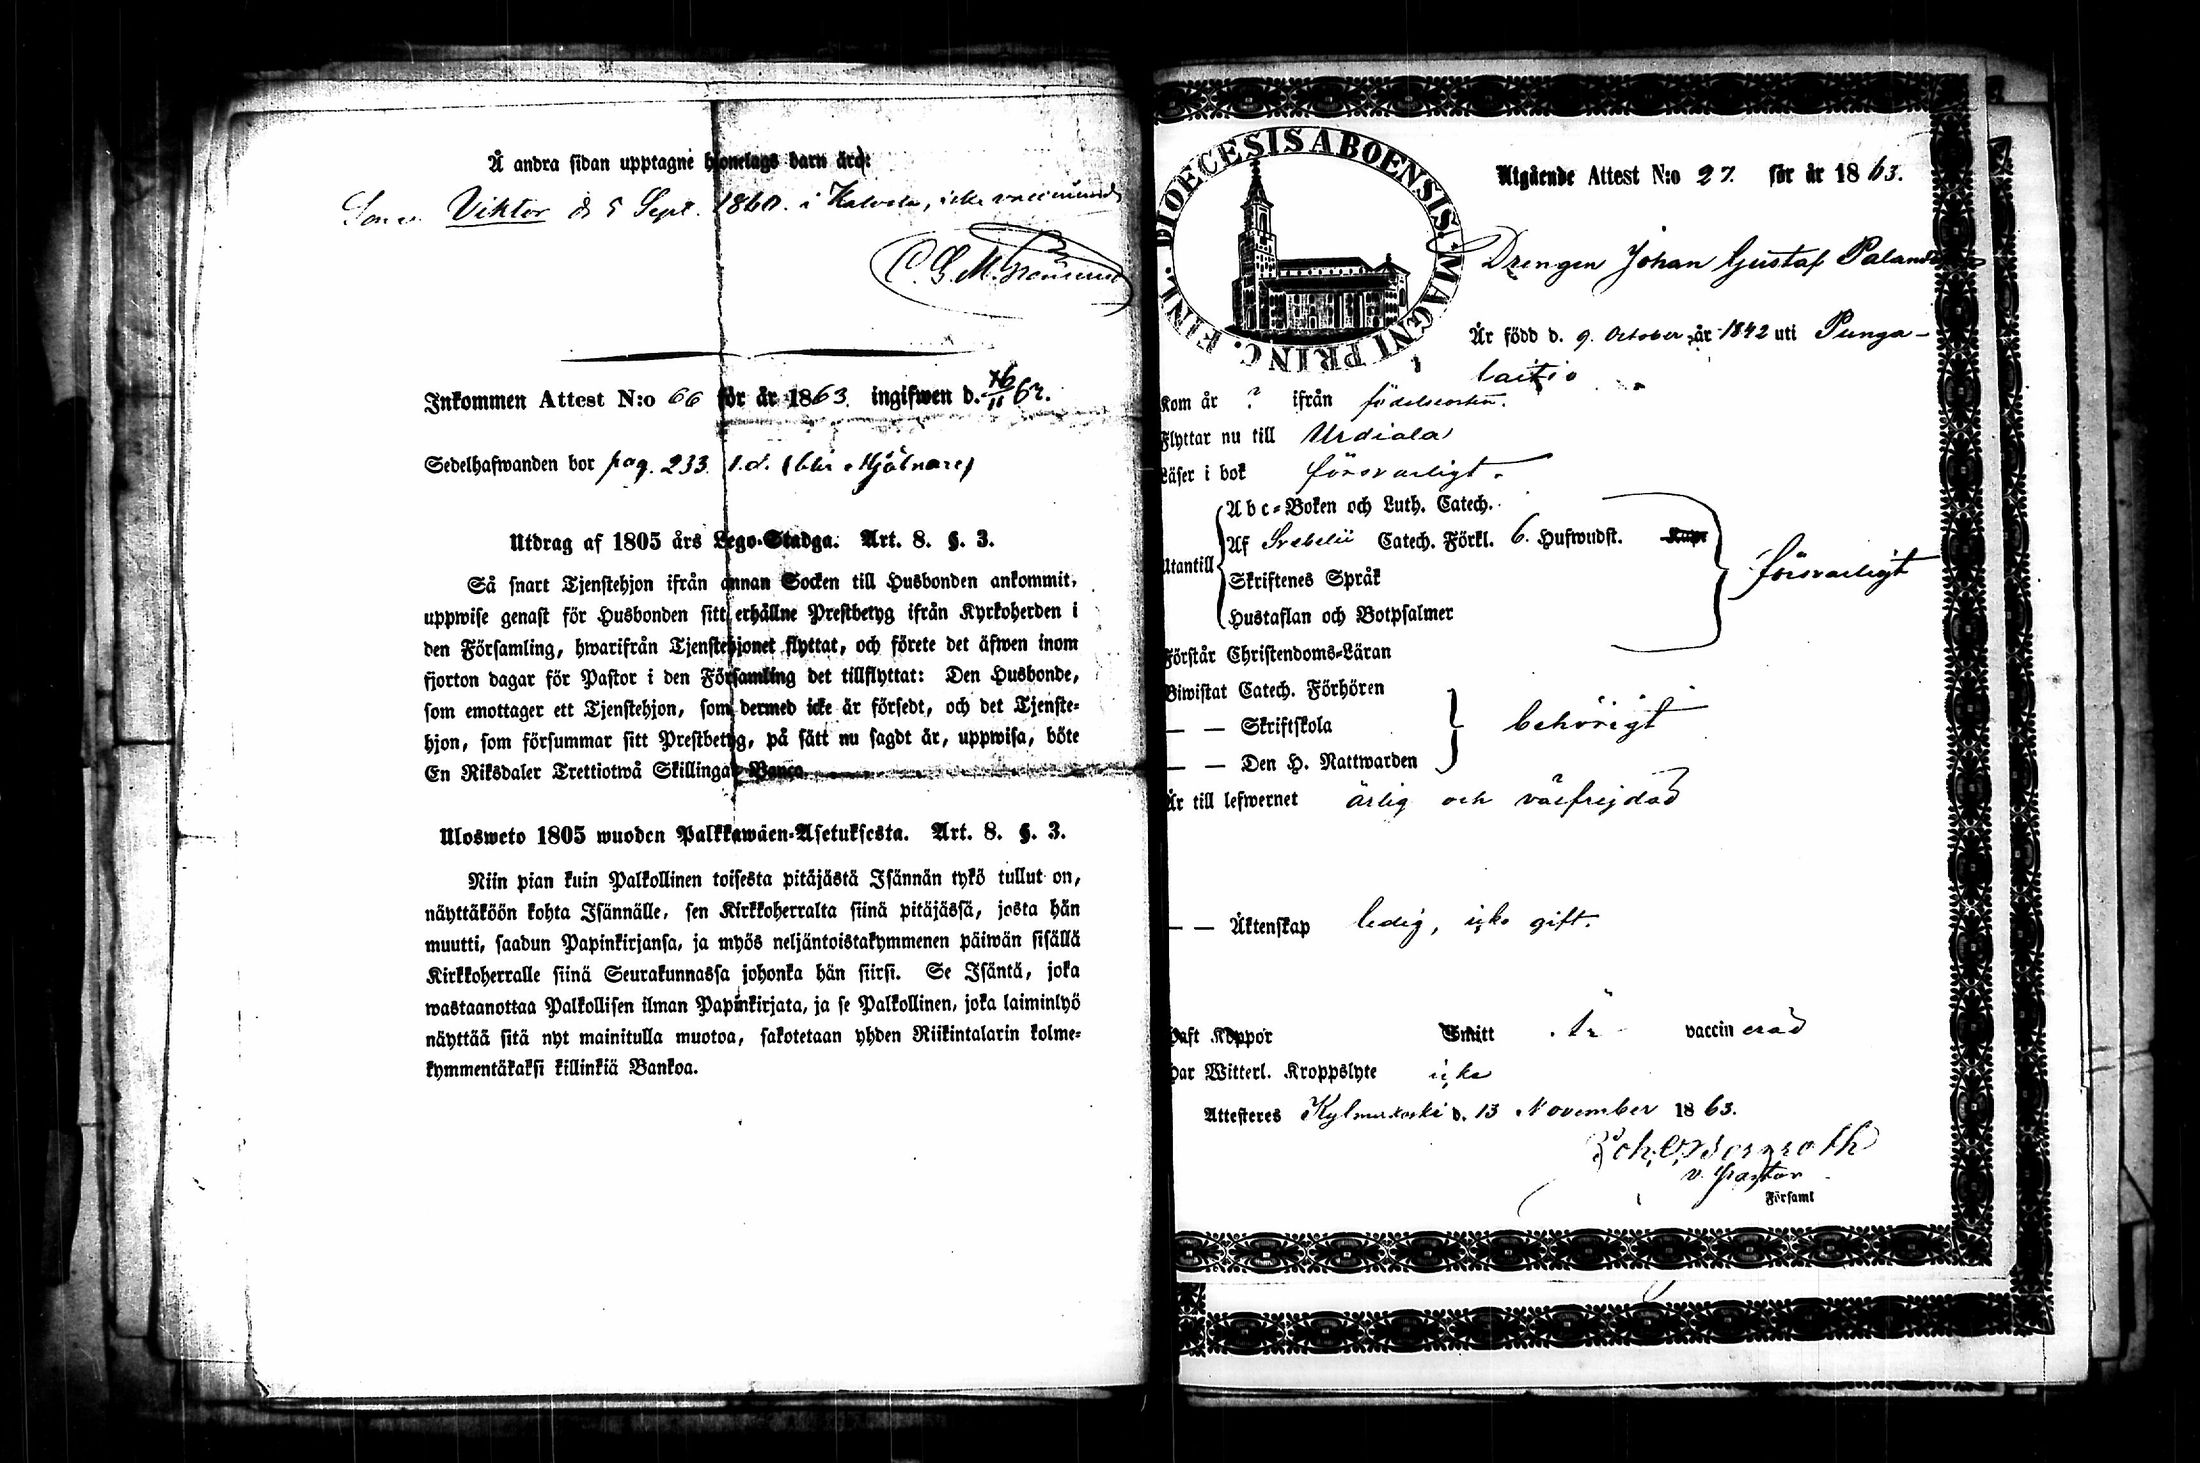 Å andra sidan upptagne hjonelags barn äro:
Sonen Viktor d 5 Sept. 1860. i Kalvola, icke vaccinerad
Inkommen Attest N:o 66 för år 1863. ingifwen d. 16/11 63.
Sedelhafwanden bor pag. 233. (blir Mjölnare)
Utdrag af 1805 års Lego-Stadga. Art. 8. §. 3.
Så snart Tjenstehjon ifrån annan Socken till Husbonden ankommit,
uppwise genast för Husbonden sitt erhållne Prestbetyg ifrån Kyrkoherden i
den Församling, hwarifrån Tjenstehjonet flyttat, och förete det äfwen inom
fjorton dagar för Pastor i den Församling det tillflyttat: Den Husbonde,
som emottager ett Tjenstehjon, som dermed icke är försedt, och det Tjenste-
hjon, som försummar sitt Prestbetyg, på sätt nu sagdt är, uppwisa, böte
En Riksdaler Trettiotwå Skillingar Banco.
Ulosweto 1805 wuoden Palkkawäen-Asetuksesta. Art. 8. §. 3.
Niin pian kuin Palkollinen toisesta pitäjästä Isännän tykö tullut on,
näyttäköön kohta Isännälle, sen Kirkkoherralta siinä pitäjässä, josta hän
muutti, saadun Papinkirjansa, ja myös neljäntoistakymmenen päiwän sisällä
Kirkkoherralle siinä Seurakunnassa johonka hän siirsi. Se Isäntä, joka
wastaanottaa Palkollisen ilman Papinkirjata, ja se Palkollinen, joka laiminlyö
näyttää sitä nyt mainitulla muotoa, sakotetaan yhden Riikintalarin kolme-
kymmentäkaksi killinkiä Bankoa.
DIOECESIS ABOENSIS. MAGNI PRINC. FINL.
Utgående Attest N:o 27. för år 1863.
Drengen Johan Gustaf
Är född d. 9. October år 1842 uti Punga-
laitio
Kom år ? ifrån födelseorten.
Flyttar nu till Urdiala
Läser i bok försvarligt.
Utantill
Abc-Boken och Luth. Catech.
Af Svebelii Catech. Förkl. 6. Hufwudst.
Skriftenes Språk
Hustaflan och Botpsalmer
försvarligt
Förstår Christendoms-Läran
Biwistat Catech. Förhören
— — Skriftskola
— — Den H. Nattwarden
behörigt
Är till lefwernet ärlig och välfrejdad
— — Äktenskap ledig, icke gift.
Haft Koppor Smitt. är vaccinerad
Har Witterl. Kroppslyte icke
Attesteres Kylmäkoski d. 13 November 1863.
v. Pastor
Församl